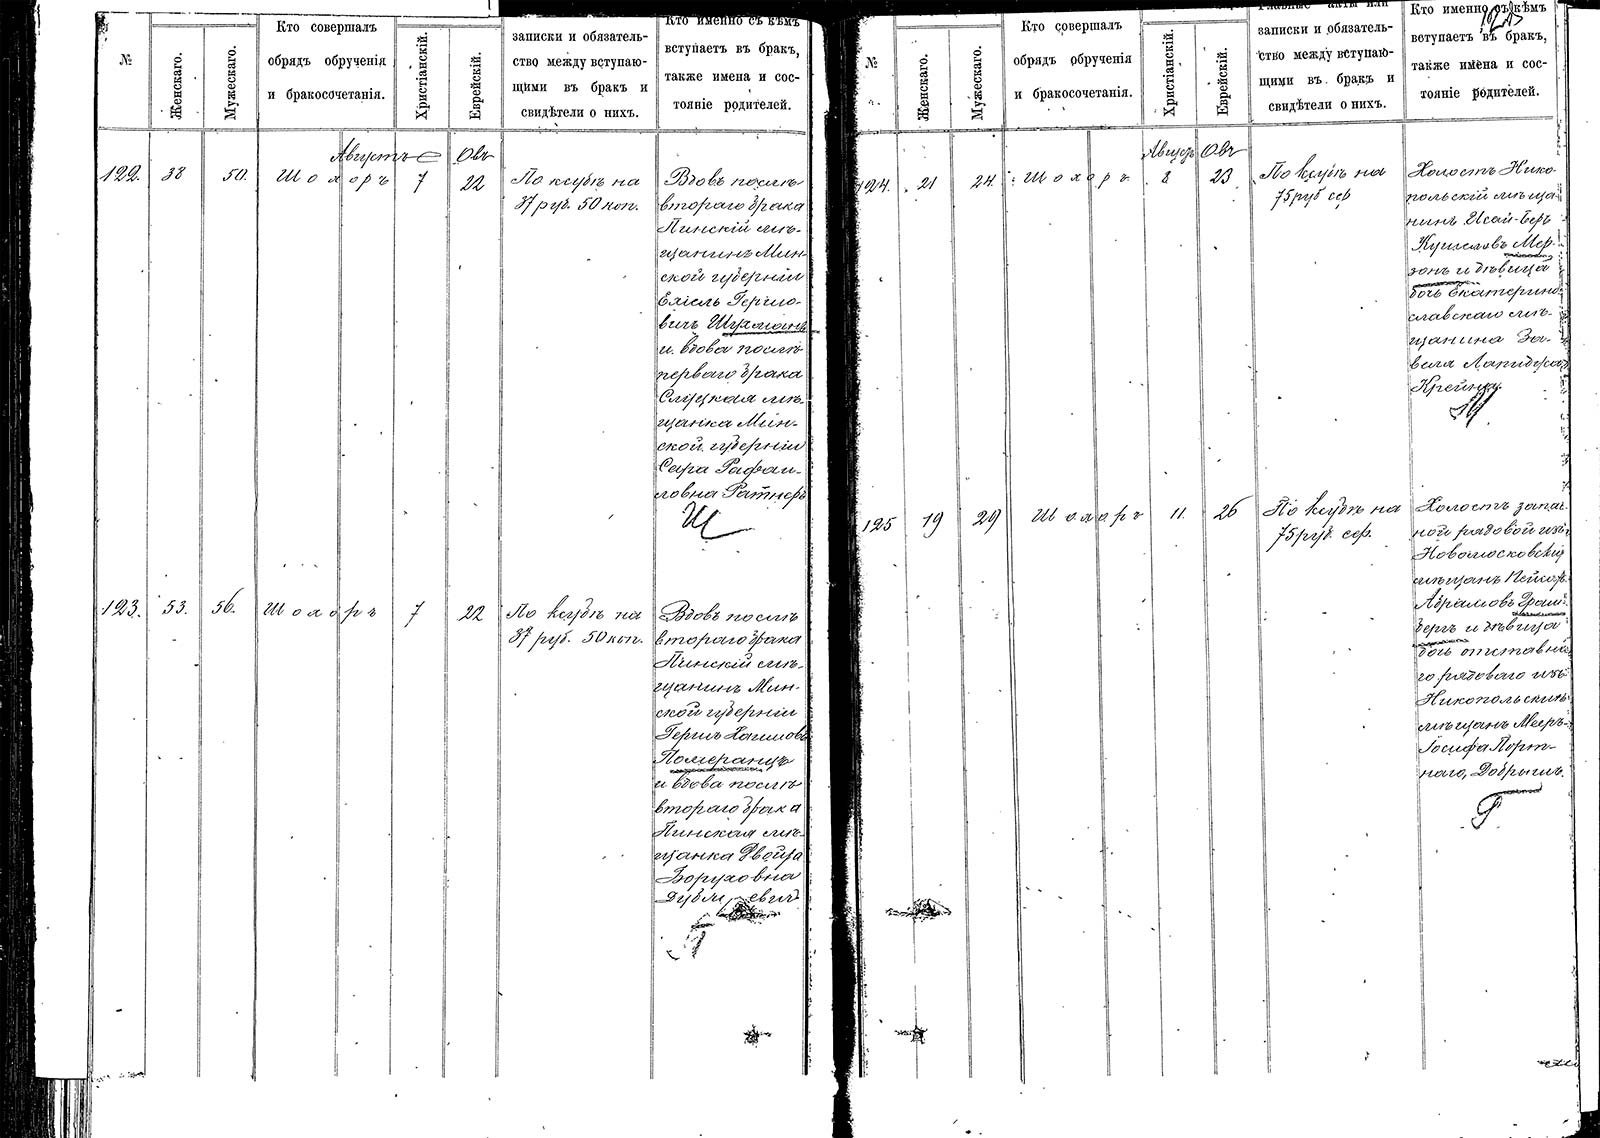 №
Женскаго.
Мужескаго.
Кто совершалъ
обрядъ обрученія
и бракосочетанія.
Христіанскій.
Еврейскій.
записки и обязатель-
ство между вступаю-
щими въ бракъ и
свидѣтели о нихъ.
Кто именно съ кѣмъ
вступаетъ въ бракъ,
также имена и сос-
тояніе родителей.
Августъ Овъ
122. 38 50. Шохоръ 7 22
По ксубѣ на
37 руб. 50 коп.
Вдовъ послѣ
втораго брака
Пинскій мѣ-
щанинъ Мин-
ской губерніи
Гершо-
вичъ Шухманъ
и вдова послѣ
перваго брака
Слуцкая мѣ-
щанка Мин-
ской губерніи
Сара Рафаи-
ловна Ратнеръ
123. 53. 56. Шохоръ 7 22
По ксубѣ на
37 руб. 50 коп.
Вдовъ послѣ
втораго брака
Пинскій мѣ-
щанинъ Мин-
ской губерніи
Гершъ Хаимовъ
Померанцъ
и вдова послѣ
втораго брака
Пинская мѣ-
щанка Двойра
Боруховна
№
Женскаго.
Мужескаго.
Кто совершалъ
обрядъ обрученія
и бракосочетанія.
Христіанскій.
Еврейскій.
Главные акты или
записки и обязатель-
ство между вступаю-
щими въ бракъ и
свидѣтели о нихъ.
Кто именно съ кѣмъ
вступаетъ въ бракъ,
также имена и сос-
тояніе родителей.
Августъ Овъ
124. 21 24. Шохоръ 8 23
По ксубѣ на
75 руб сер
Холостъ Нико-
польскій мѣща-
нинъ Исай-Беръ
Кушелевъ Мер-
зонъ и дѣвица
дочь Екатерино-
славскаго мѣ-
щанина За-
вела Лапидуса
Крейна.
125 19 29 Шохоръ 11. 26
По ксубѣ на
75 руб. сер.
Холостъ запас-
ной рядовой изъ
Новомосковскихъ
мѣщанъ
Абрамовъ Грин-
бергъ и дѣвица
дочь отставна-
го рядоваго изъ
Никопольскихъ
мѣщанъ Мееръ-
Іосифа Порт-
наго, Добрышъ.